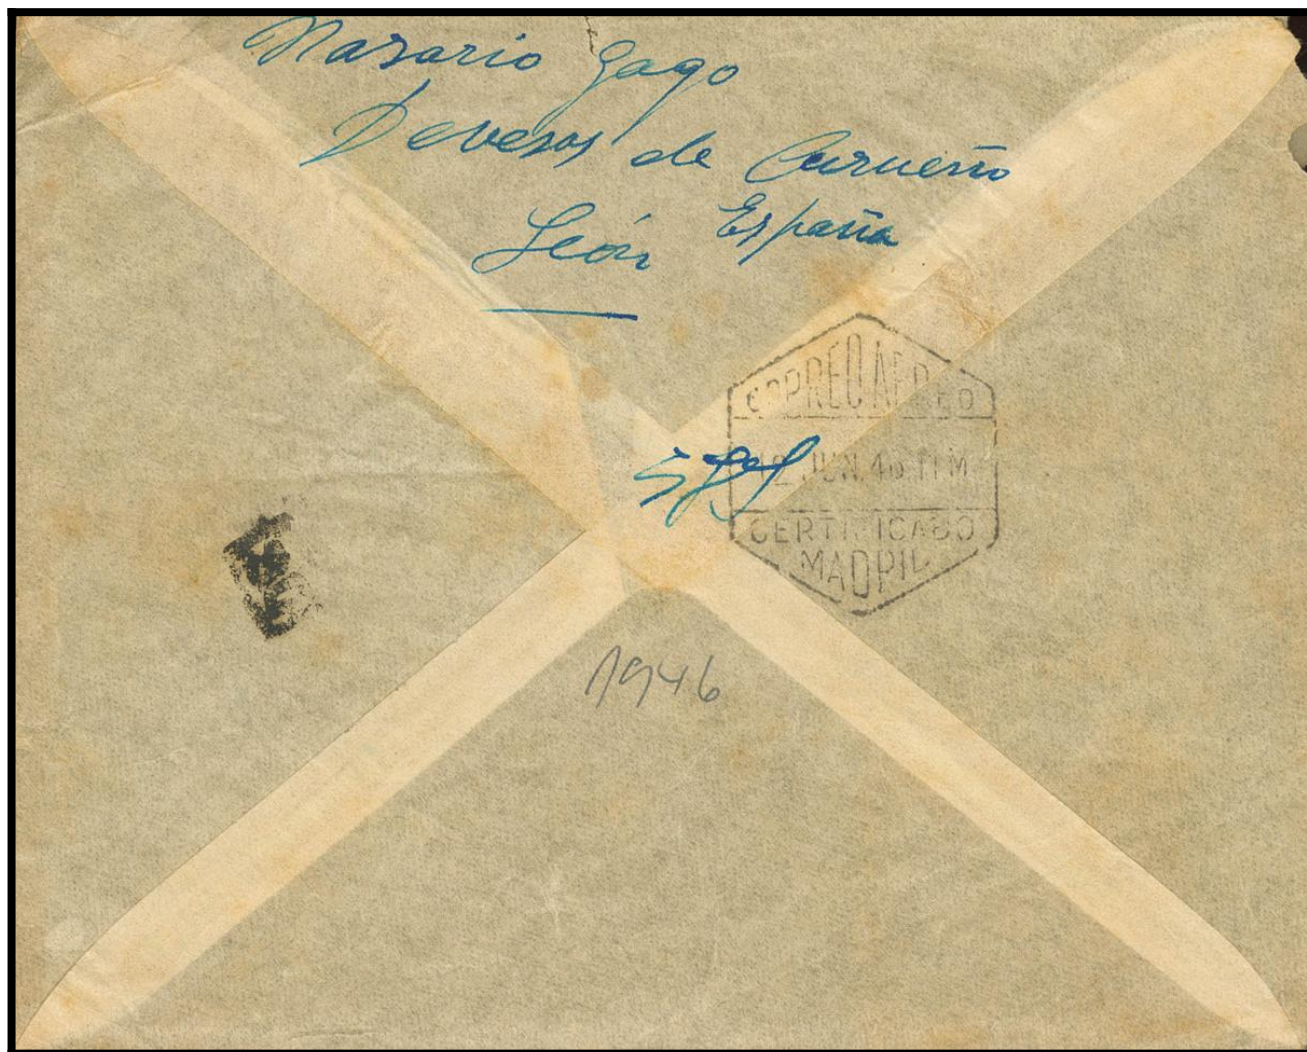 Nasario Gago
Devesos de Curueño
León España
CORREO AEREO
12 JUN. 46 11 M
CERTIFICADO
MADRID
1946